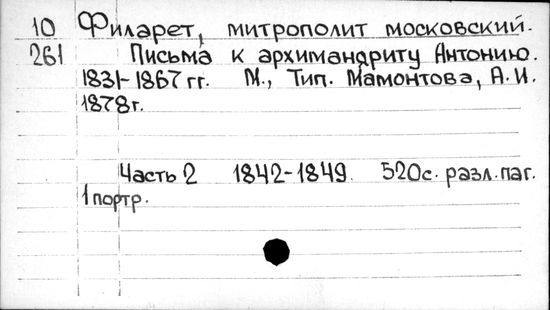 10 Филарет, митрополит московский.
261 Письма к архимандриту Антонию.
1831-1867 гг. М., Тип. Мамонтова, А.И.
1878 г.
Часть 2 1842-1849. 520с. разл. паг.
1 портр.